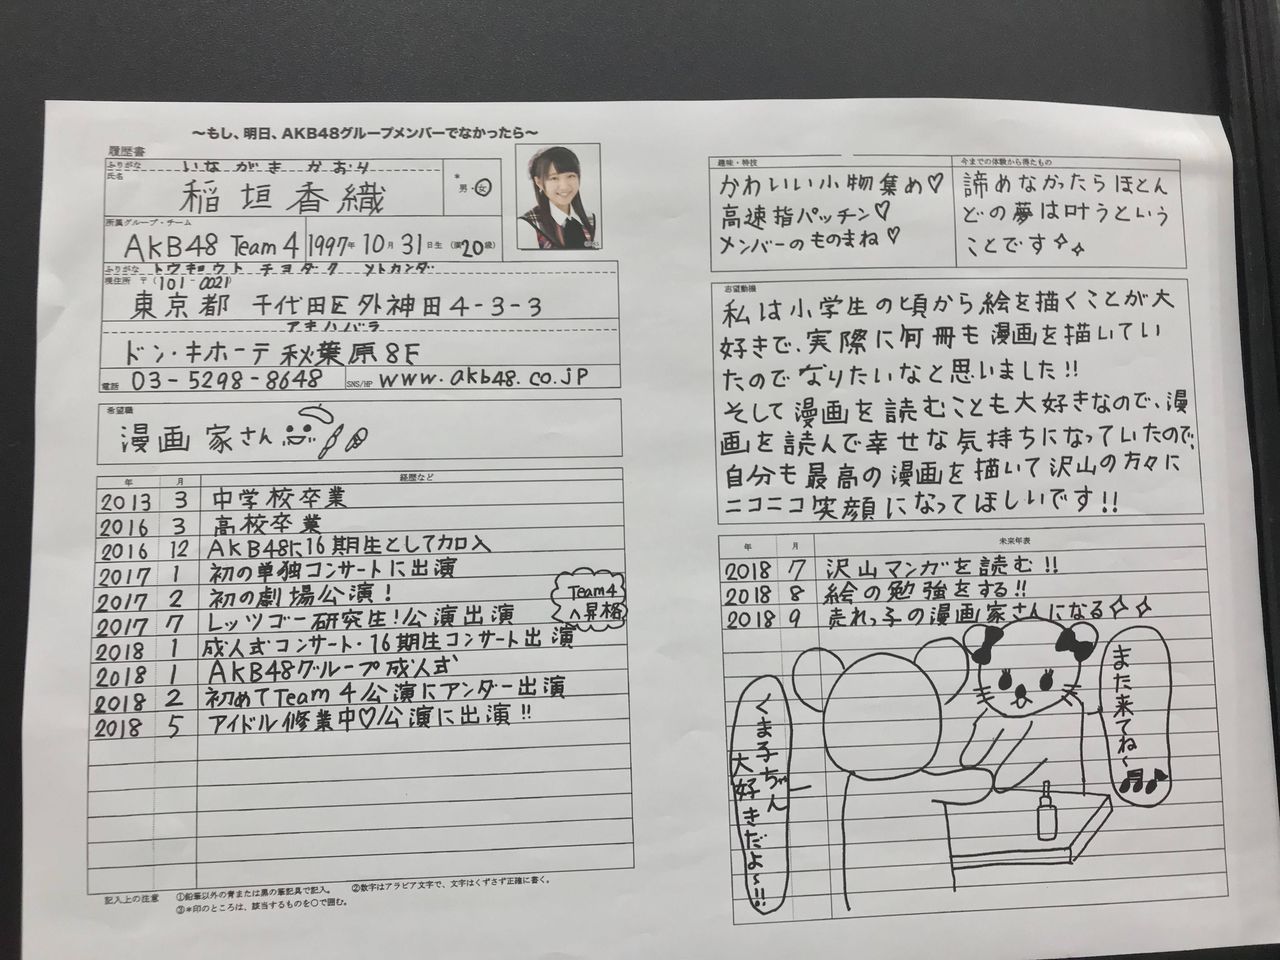 ～もし、明日、AKB48グループメンバーでなかったら～
履歴書
ふりがな いながき かおり
氏名 稲垣香織
* 男・女
所属グループ・チーム
AKB48 Team4 1997年 10月 31日生 (満20歳)
ふりがな トウキョウト チヨダク ソトカンダ
現住所 〒(101-0021)
東京都 千代田区外神田4-3-3
アキハバラ
ドン・キホーテ秋葉原8F
電話 03-5298-8648 SNS/HP www.akb48.co.jp
希望職
漫画家さん
年 月 経歴など
2013 3 中学校卒業
2016 3 高校卒業
2016 12 AKB48に16期生として加入
2017 1 初の単独コンサートに出演
2017 2 初の劇場公演!
2017 7 レッツゴー研究生!公演出演
Team4
へ昇格
2018 1 成人式コンサート・16期生コンサート出演
2018 1 AKB48グループ成人式
2018 2 初めてTeam4公演にアンダー出演
2018 5 アイドル修業中♡公演に出演!!
記入上の注意 ①鉛筆以外の青または黒の筆記具で記入。 ②数字はアラビア文字で、文字はくずさず正確に書く。
③*印のところは、該当するものを○で囲む。
趣味・特技
かわいい小物集め♡
高速指パッチン♡
メンバーのものまね♡
今までの体験から得たもの
諦めなかったらほとん
どの夢は叶うという
ことです✧✧
志望動機
私は小学生の頃から絵を描くことが大
好きで、実際に何冊も漫画を描いてい
たのでなりたいなと思いました!!
そして漫画を読むことも大好きなので、漫
画を読んで幸せな気持ちになっていたので、
自分も最高の漫画を描いて沢山の方々に
ニコニコ笑顔になってほしいです!!
年 月 未来年表
2018 7 沢山マンガを読む!!
2018 8 絵の勉強をする!!
2018 9 売れっ子の漫画家さんになる✧✧
また来てね～♬♪
くま子ちゃん
大好きだよ～!!